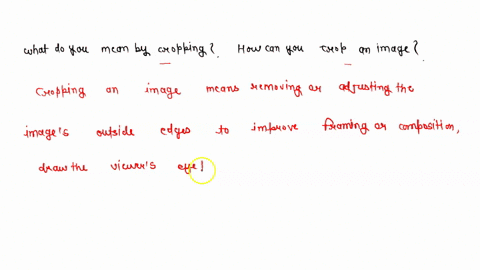 what do you mean by cropping? How can you crop an image?
Cropping an image means removing or adjusting the
image's outside edges to improve framing or composition,
draw the viewer's eye